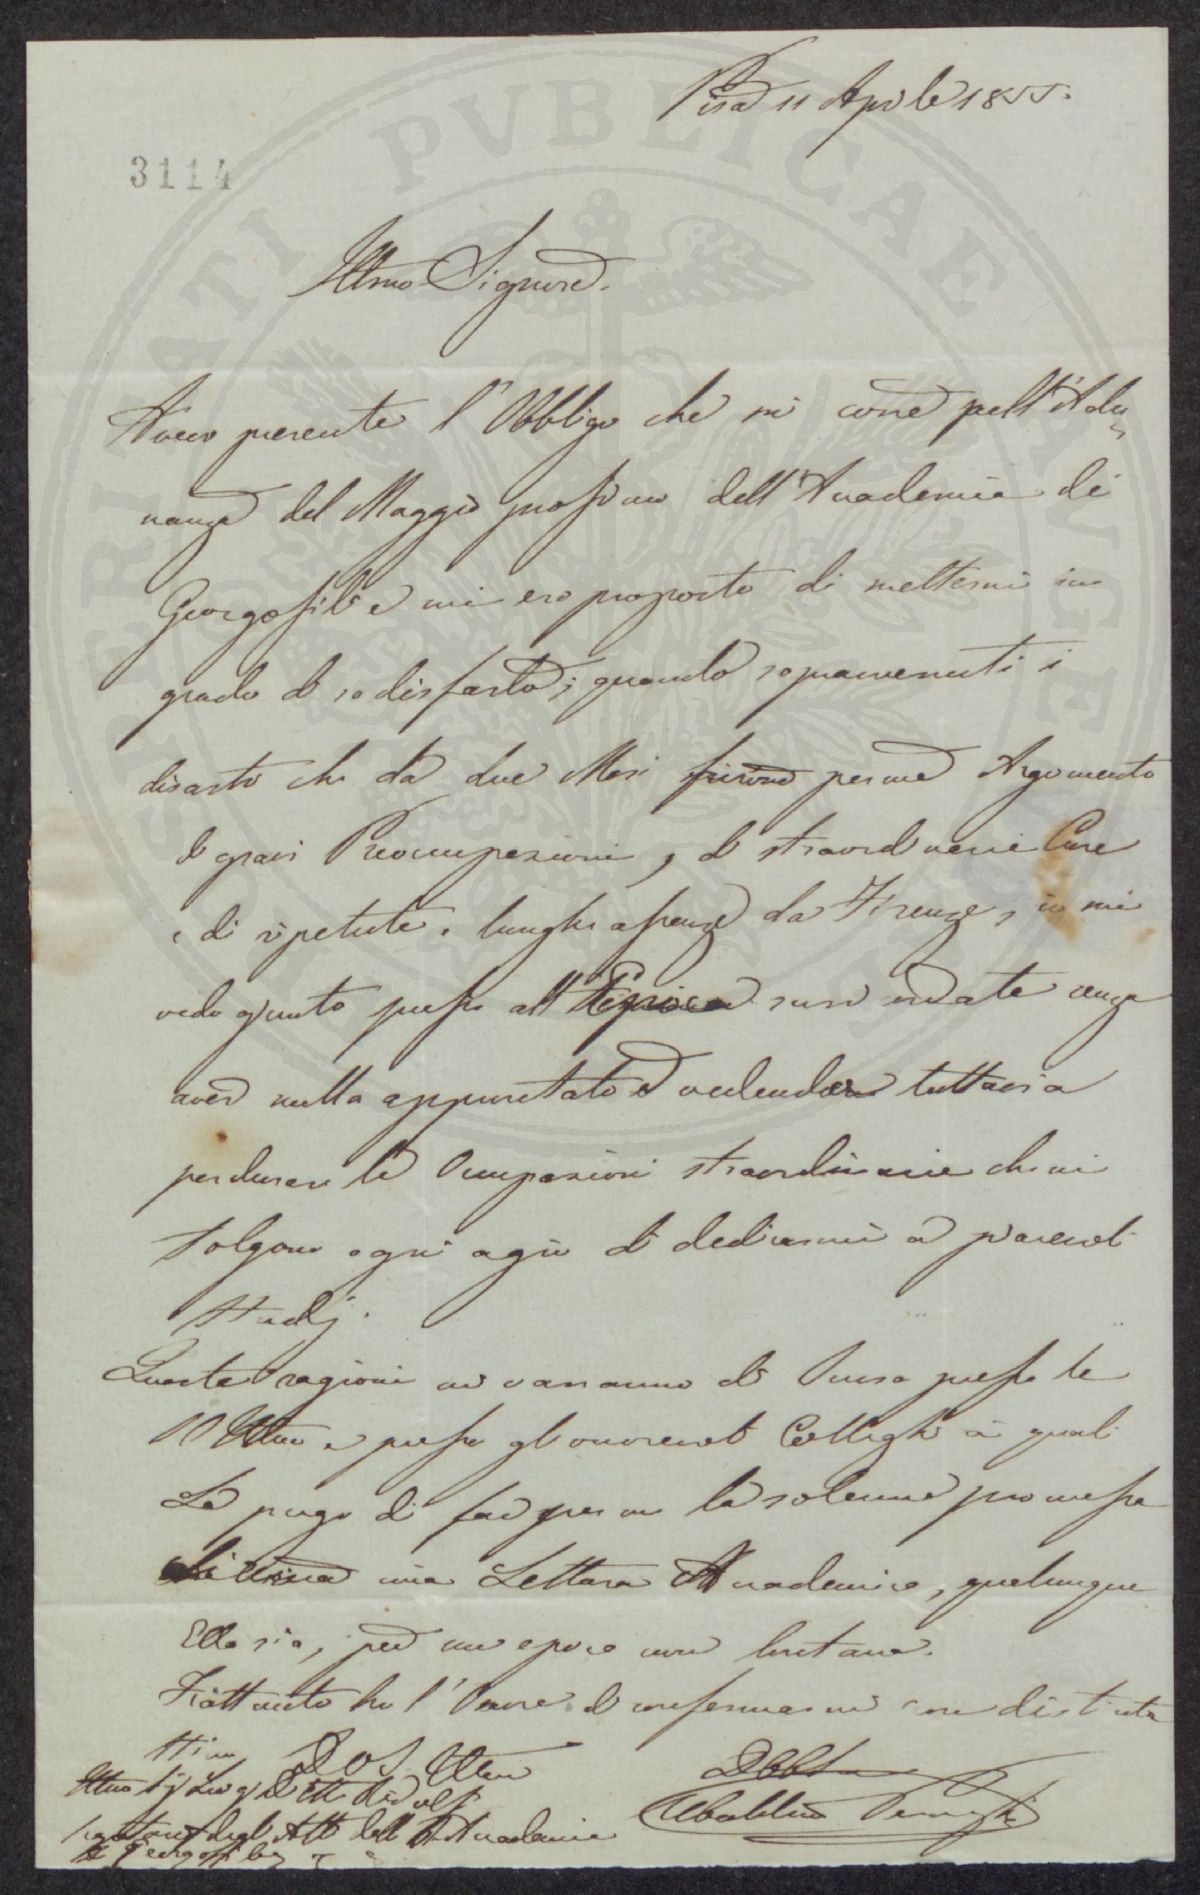 Pisa 11 Aprile 1855.
3114
Illmo Signore.
Avevo presente l'Obbligo che mi corre pell'Adu=
nanza del Maggio prossimo dell'Accademia dei
Georgofili e mi ero proposto di mettermi in
grado di sodisfarlo; quando sopravvenuti i
disastri che da due Mesi furono per me Argomento
di gravi Preoccupazioni, di straordinarie Cure
e di ripetute e lunghe assenze da Firenze, io mi
vedo giunto presso all'Epoca surricordata senza
aver nulla appuntato e vedendo tuttavia
perdurare le Occupazioni straordinarie che mi
tolgono ogni agio di dedicarmi a piacevoli
studj.
Queste ragioni mi varranno di Scusa presso la
VS Illma e presso gl'onorevoli Colleghi ai quali
La prego di far per me la solenne promessa
di una mia Lettura Accademica, qualunque
Ella sia, per un epoca non lontana.
Frattanto ho l'Onore di confermarmi con distinta
stima Di VS. Illma
Illmo Sig Luigi Ridolfi
Segretario degli Atti dell'Accademia
dei Georgofili
Ubaldino Peruzzi
PVBLICAE
PROSPERITATI